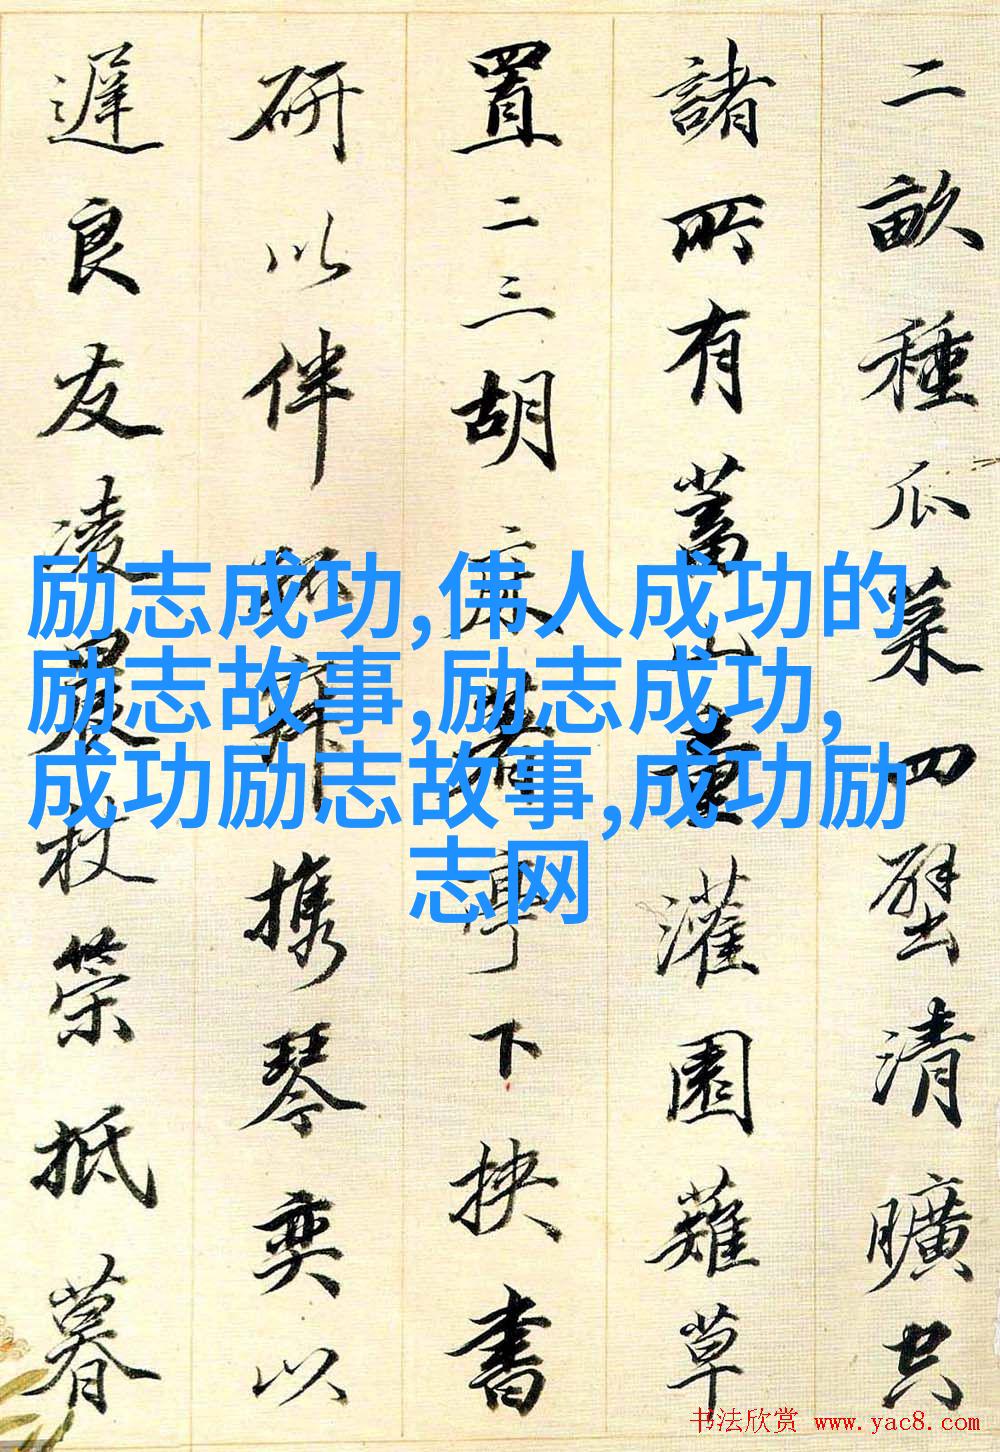 二畝種瓜菜四壁清曠空
諸所有蓄山童灌園薙草
置二三胡床著亭下挾書
研以伴孤寂攜琴奕以
遲良友凌晨杖策抵暮
励志成功,伟人成功的
励志故事,励志成功,
成功励志故事,成功励
志网
书法欣赏 www.yac8.com